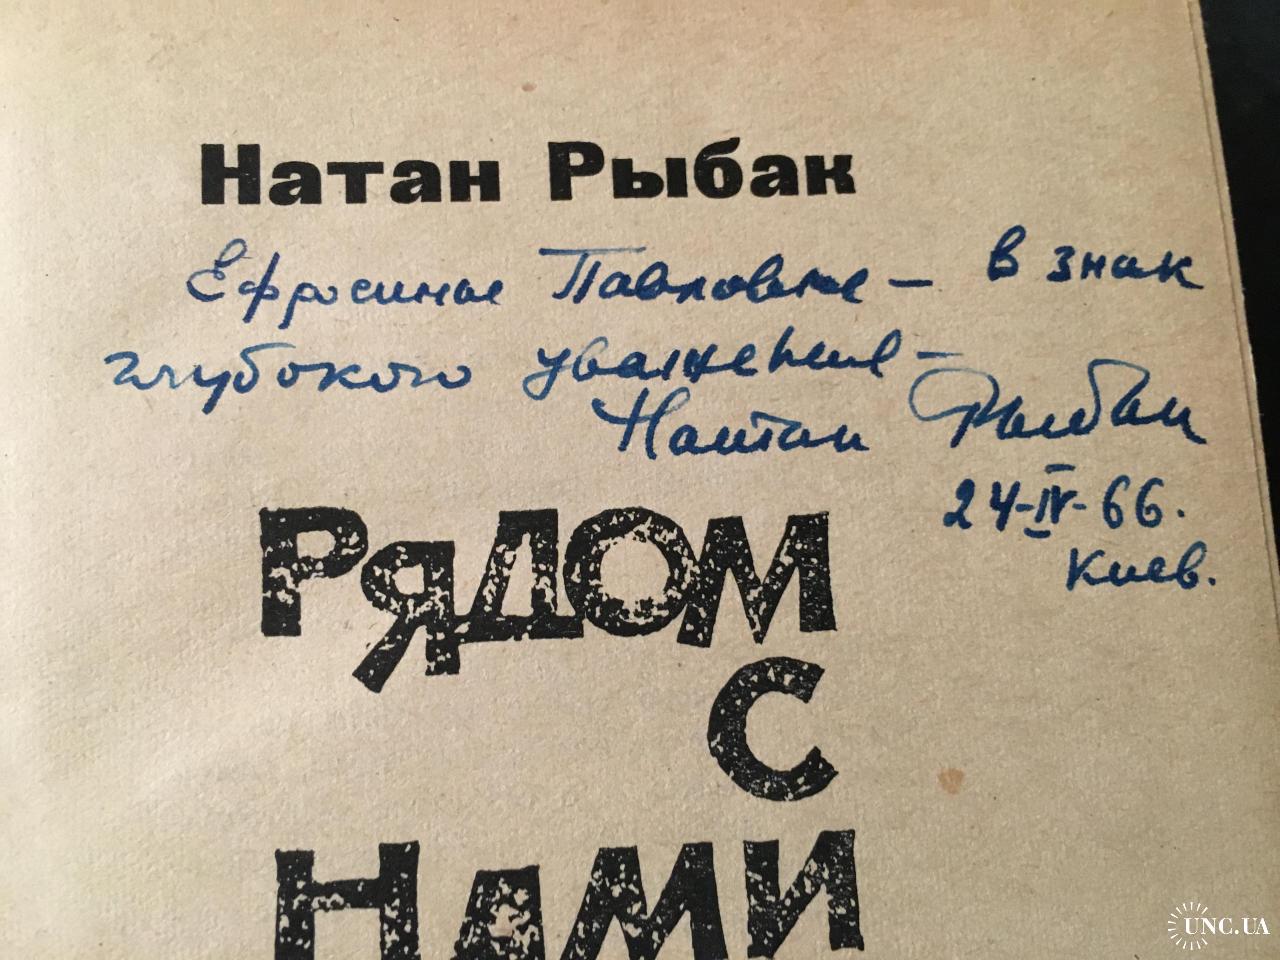 Натан Рыбак
Ефросинье Павловне – в знак
глубокого уважения –
Натан Рыбак
24-IV-66.
Киев.
РЯДОМ
С
НАМИ
UNC.UA